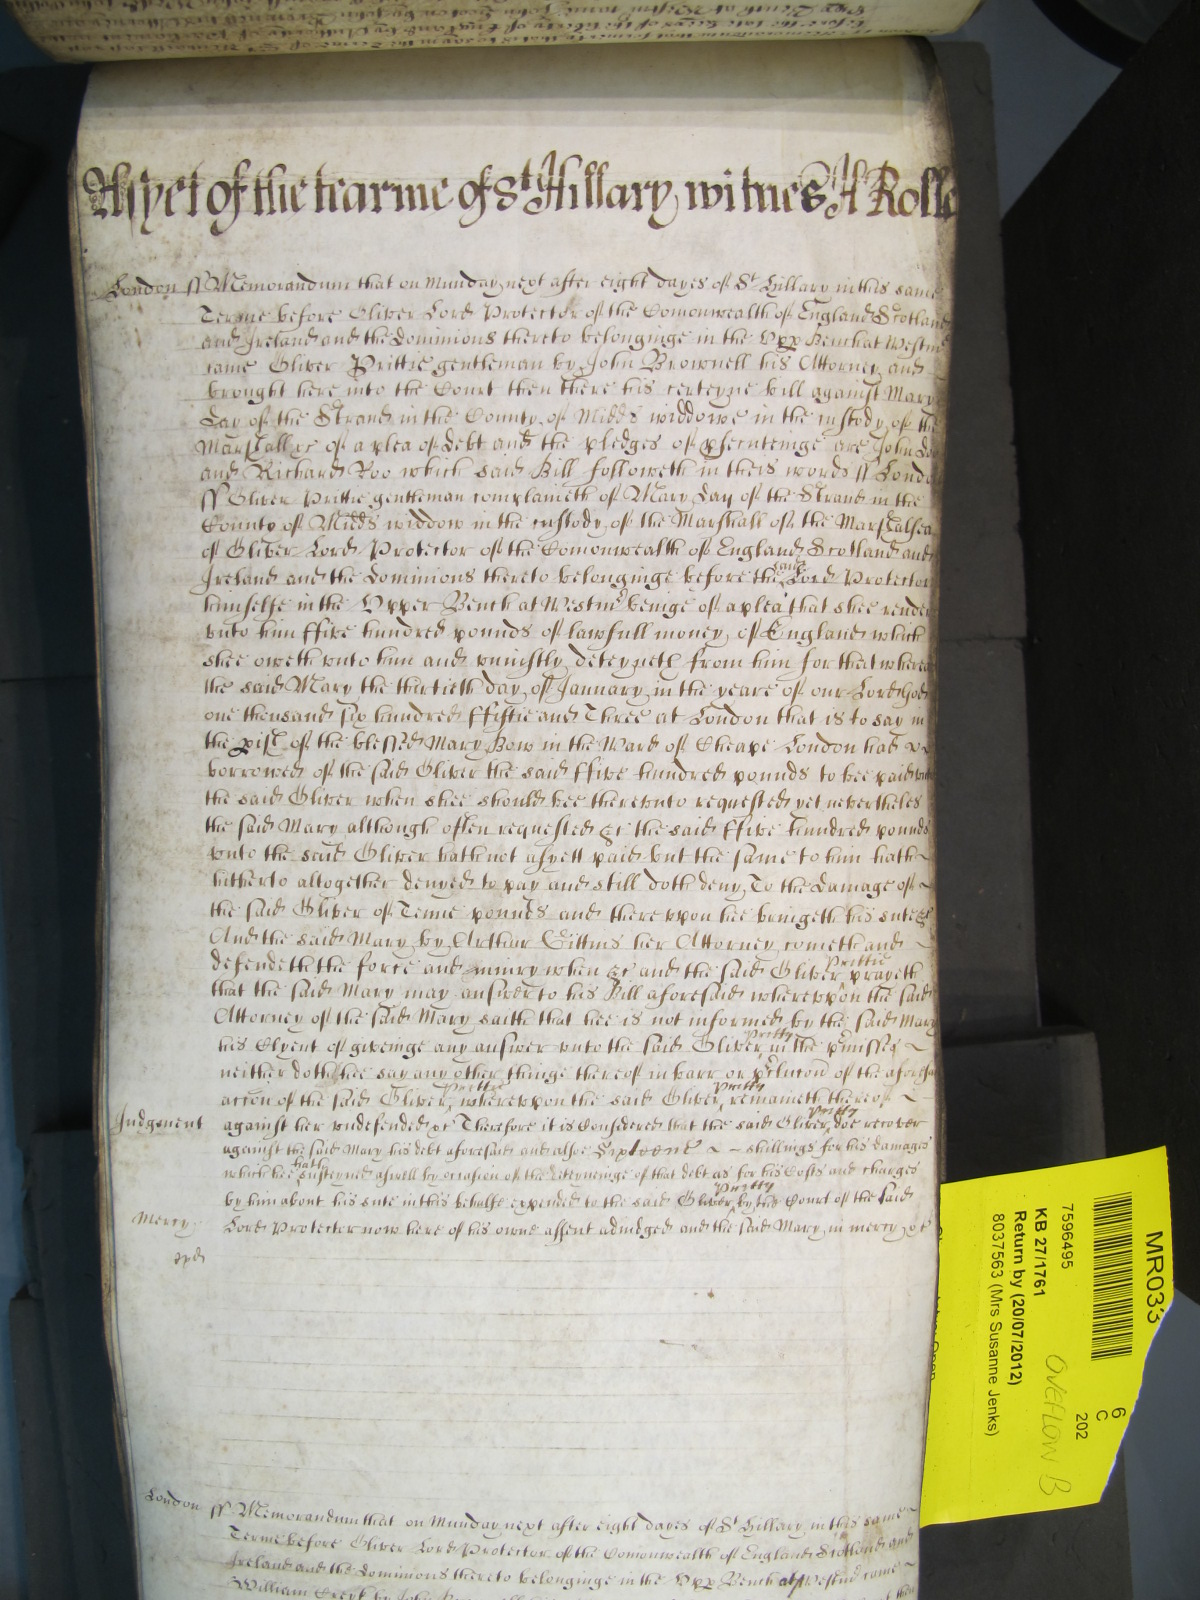 Asyet of the tearme of St Hillary witnes H Rolle
London ss Memorandum that on Munday next after eight dayes of St Hillary in this same
Terme before Oliver Lord Protector of the Comonwealth of England Scotland
and Ireland and the Dominions thereto belonginge in the Upp Bench at Westm
came Oliver Prittie gentleman by John Brownell his Attorney and
brought here into the Court then there his certeyne bill against Mary
Lay of the Strand in the County of Midds widdowe in the custody of the
Marshall &c of a plea of debt and the pledges of psecuteinge are John Doo
and Richard Roo which said Bill followeth in theis words ss London
ss Oliver Prittie gentleman complaineth of Mary Lay of the Strand in the
County of Midds widdow in the custody of the Marshall of the Marshalsea
of Oliver Lord Protector of the Comonwealth of England Scotland and
Ireland and the Dominions thereto belonginge before the said Lord Protector
himselfe in the Upper Bench at Westm beinge of a plea that shee render
unto him ffive hundred pounds of lawfull money of England which
shee oweth unto him and uniustly deteyneth from him for that whereas
the said Mary the thirtieth day of January in the yeare of our Lord God
one thousand six hundred ffiftie and Three at London that is to say in
the pish of the blessed Mary Bow in the Ward of Cheape London had
borrowed of the said Oliver the said ffive hundred pounds to bee paid unto
the said Oliver when shee should bee thereunto requested yet neverthelес
the said Mary although often requested &c the said ffive hundred pounds
unto the said Oliver hath not asyett paid but the same to him hath
hitherto altogether denyed to pay and still doth deny To the Damage of
the said Oliver of Tenne pounds and thereupon hee bringeth his sute &c
And the said Mary by Arthur Gittins her Attorney cometh and
defendeth the force and iniury when &c and the said Oliver Prittie prayeth
that the said Mary may answer to his Bill aforesaid whereupon the said
Attorney of the said Mary saith that hee is not informed by the said Mary
his Clyent of giveinge any answer unto the said Oliver Pritty in the pmisses
neither doth hee say any other thinge thereof in barr or pclucon of the aforesaid
accon of the said Oliver Prittie whereupon the said Oliver Pritty remaineth thereof
Judgment against her undefended &c Therefore it is Considered that the said Oliver Pritty doe recover
against the said Mary his debt aforesaid and alsoe Sixteene shillings for his damages
which hee hath susteyned aswell by occasion of the deteyneinge of that debt as for his Costs and charges
by him about his sute in this behalfe expended to the said Oliver Pritty by the Court of the said
Mercy Lord Protector now here of his owne assent adiudged and the said Mary in mercy &c
London ss Memorandum that on Munday next after eight dayes of St Hillary in this same
Terme before Oliver Lord Protector of the Comonwealth of England Scotland and
Ireland and the Dominions thereto belonginge in the Upp Bench at Westm came
William
MR033
7596495
KB 27/1761
Return by (20/07/2012)
8037563 (Mrs Susanne Jenks)
6
C
202
OVEFLOW B